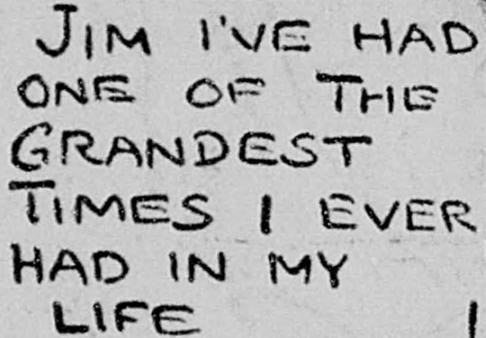 JIM I'VE HAD
ONE OF THE
GRANDEST
TIMES I EVER
HAD IN MY
LIFE I